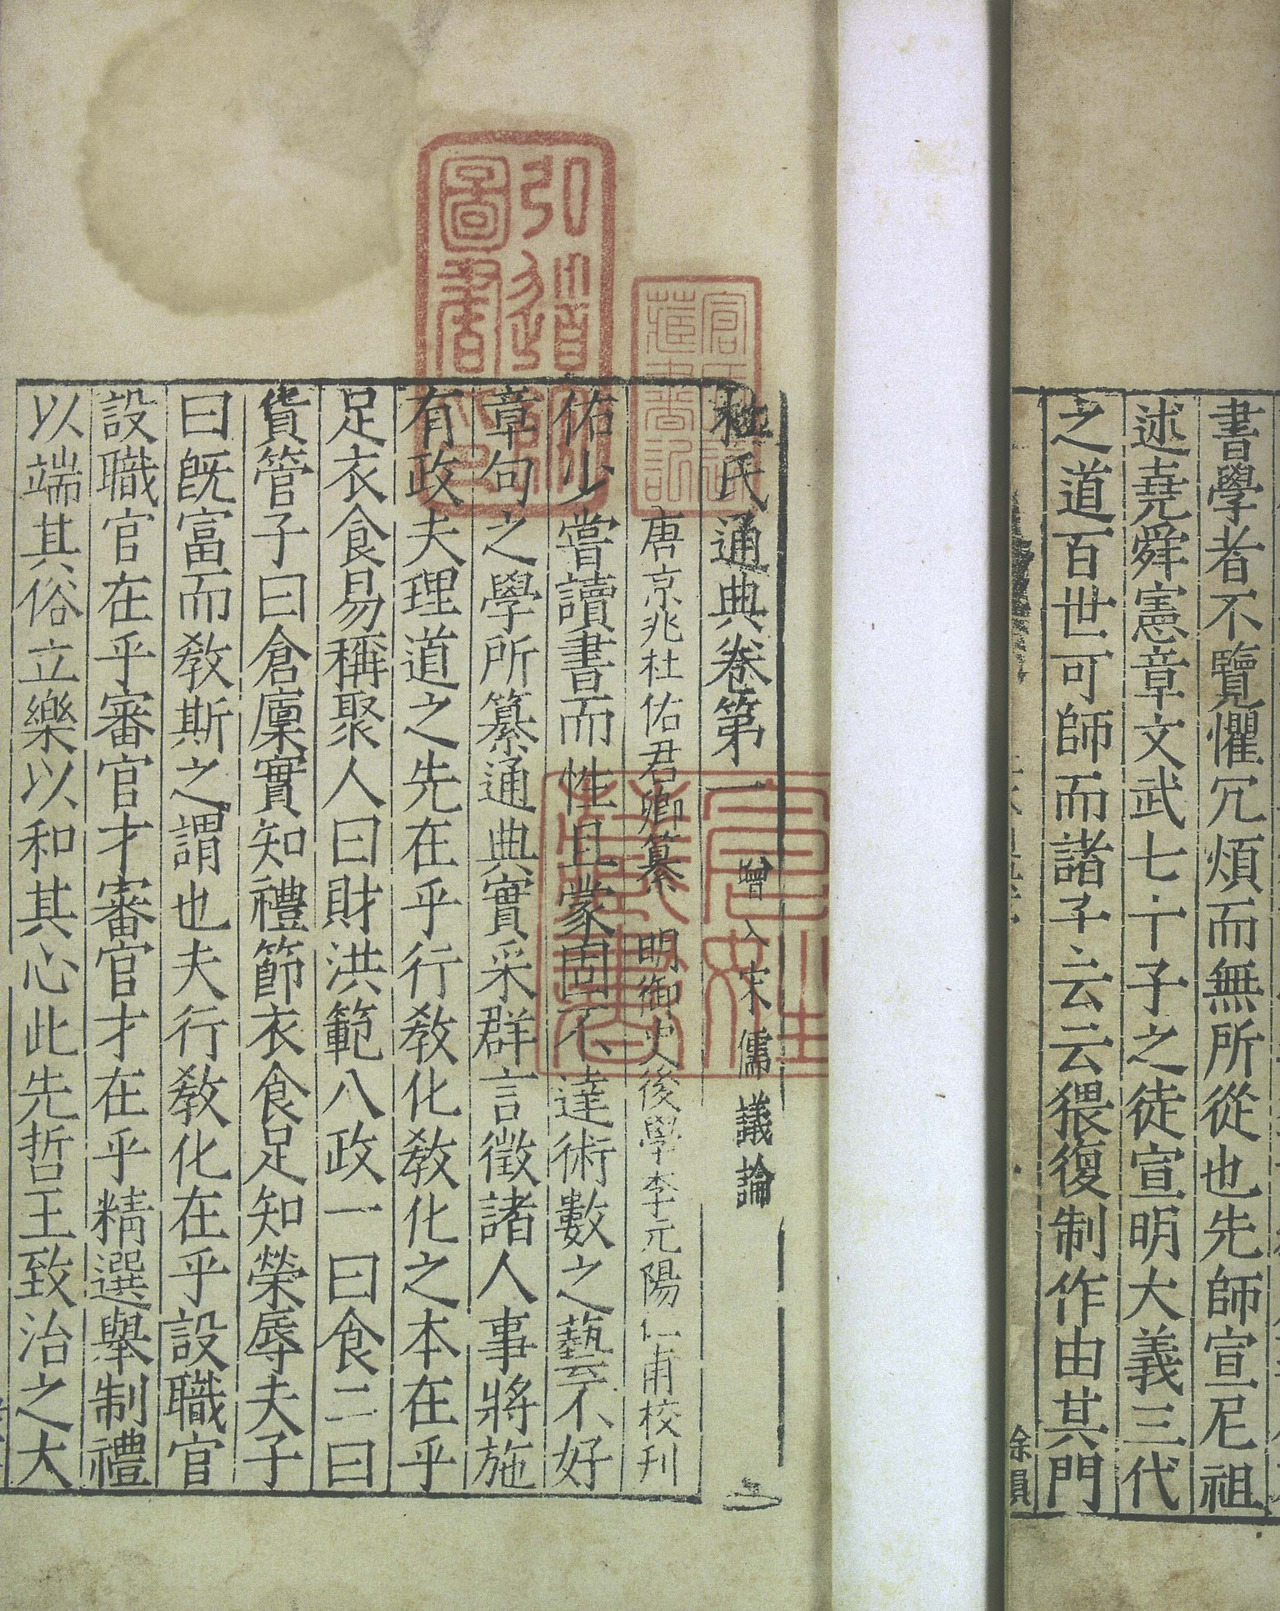 書學者不覽懼冗煩而無所從也先師宣尼祖
述堯舜憲章文武七十子之徒宣明大義三代
之道百世可師而諸子云云猥復制作由其門
杜氏通典卷第一 增入宋儒議論
唐京兆杜佑君卿纂 明御史後學李元陽仁甫校刊
佑少嘗讀書而性且蒙固不達術數之藝不好
章句之學所纂通典實采群言徵諸人事將施
有政夫理道之先在乎行教化教化之本在乎
足衣食易稱聚人曰財洪範八政一曰食二曰
貨管子曰倉廩實知禮節衣食足知榮辱夫子
曰旣富而教斯之謂也夫行教化在乎設職官
設職官在乎審官才審官才在乎精選舉制禮
以端其俗立樂以和其心此先哲王致治之大